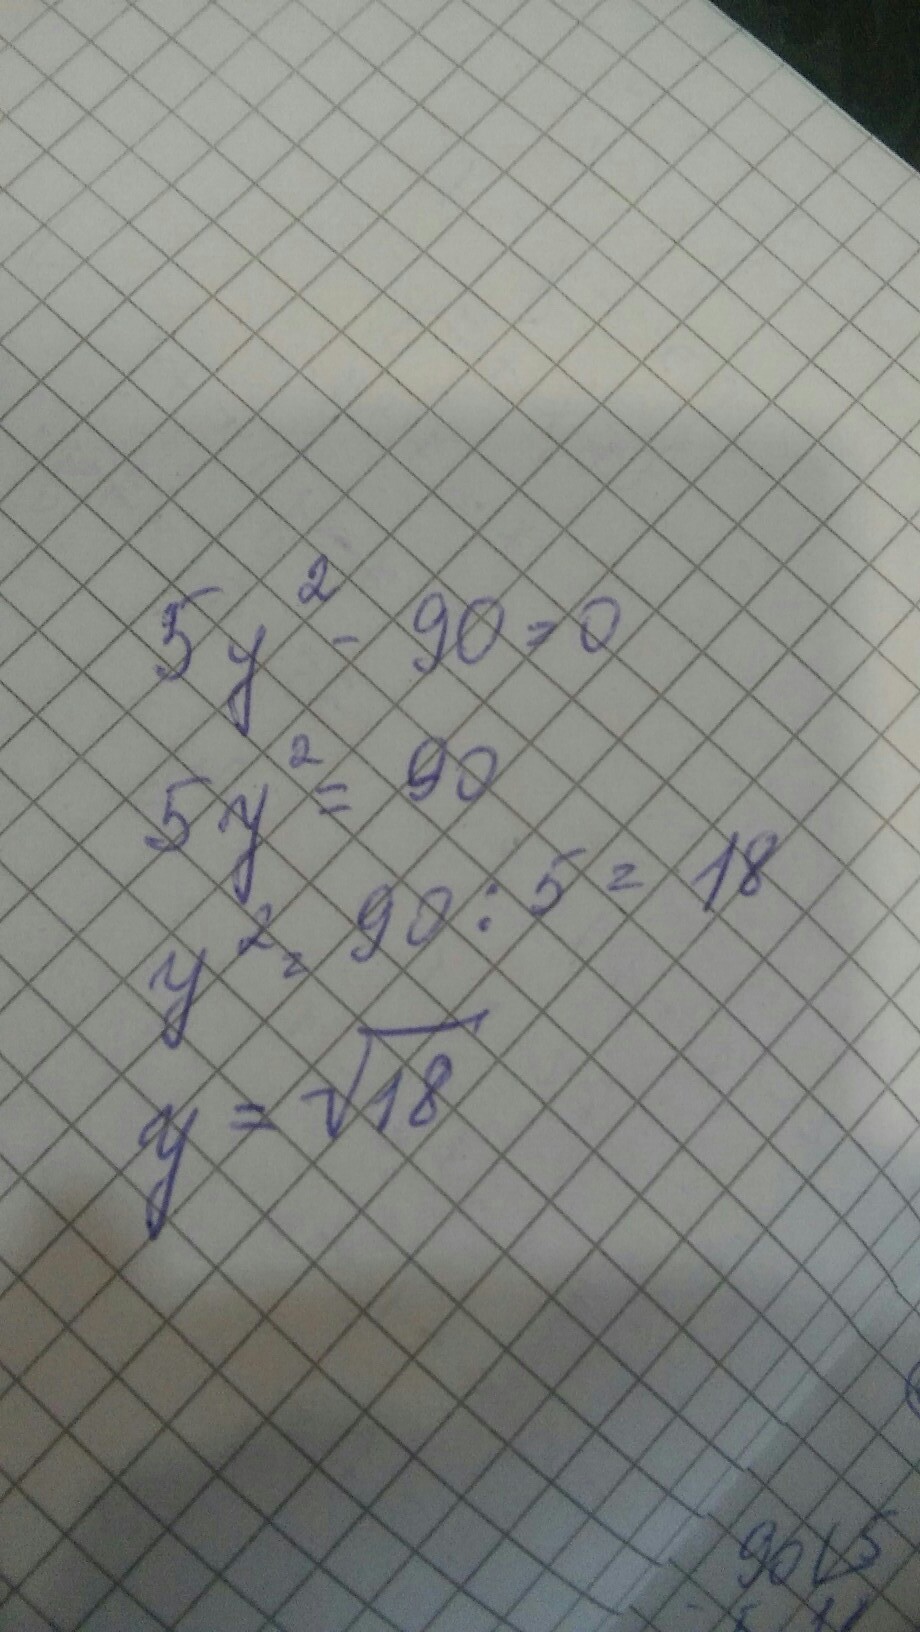 5y² - 90 = 0
5y² = 90
y² = 90 : 5 = 18
y = √18
90 5